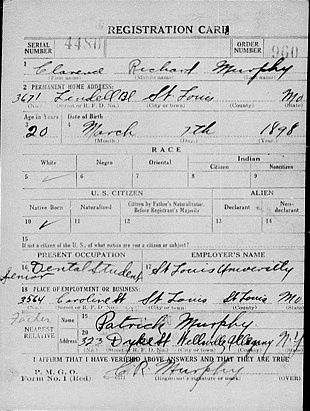 REGISTRATION CARD
SERIAL NUMBER 4480 ORDER NUMBER 960
1 Clarence Richard Murphy
(First name) (Middle name) (Last name)
2 PERMANENT HOME ADDRESS:
3671 Lindell Bl St Louis Mo
(Street or R. F. D. No.) (City or town) (County) (State)
Age in Years Date of Birth
3 20 4 March 7th 1898
(Month.) (Day.) (Year.)
RACE
White Negro Oriental Indian
Citizen Noncitizen
5 ✓ 6 7 8 9
U. S. CITIZEN ALIEN
Native Born Naturalized Citizen by Father's Naturalization Before Registrant's Majority Declarant Non-declarant
10 ✓ 11 12 13 14
15
If not a citizen of the U. S., of what nation are you a citizen or subject?
PRESENT OCCUPATION EMPLOYER'S NAME
16 Dental Student 17 St Louis University
Senior
18 PLACE OF EMPLOYMENT OR BUSINESS:
3564 Caroline St St Louis St Louis Mo
(Street or R. F. D. No.) (City or town) (County) (State)
Father
NEAREST RELATIVE
Name 19 Patrick Murphy
Address 20 323 Dyke St Wellsville Allegany N.Y.
(Street or R. F. D. No.) (City or town) (County) (State)
I AFFIRM THAT I HAVE VERIFIED ABOVE ANSWERS AND THAT THEY ARE TRUE
P. M. G. O.
Form No. 1 (Red) C R Murphy
(Registrant's signature or mark) (OVER)